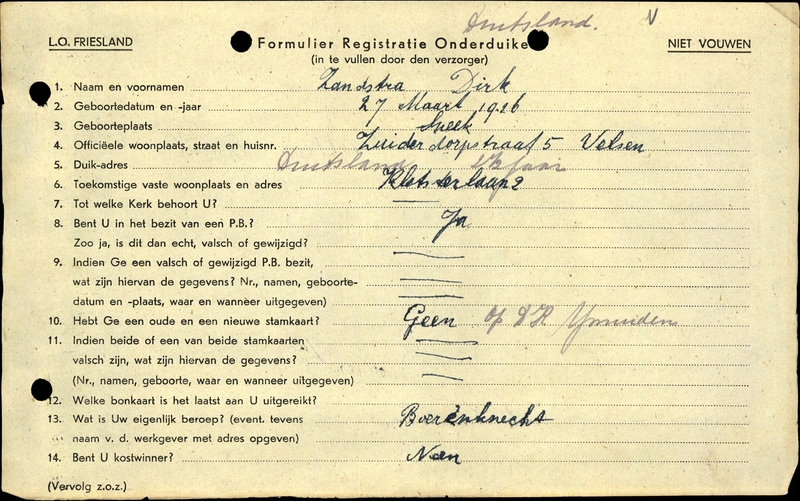 Duitsland. V
L.O. FRIESLAND Formulier Registratie Onderduike NIET VOUWEN
(in te vullen door den verzorger)
1. Naam en voornamen Zandstra Dirk
2. Geboortedatum en -jaar 27 Maart 1926
3. Geboorteplaats Sneek
4. Officiëele woonplaats, straat en huisnr. Zuiderdorpstraat 5 Velsen
5. Duik-adres Duitsland
6. Toekomstige vaste woonplaats en adres
7. Tot welke Kerk behoort U?
8. Bent U in het bezit van een P.B.? Ja
Zoo ja, is dit dan echt, valsch of gewijzigd?
9. Indien Ge een valsch of gewijzigd P.B. bezit,
wat zijn hiervan de gegevens? Nr., namen, geboorte-
datum en -plaats, waar en wanneer uitgegeven)
10. Hebt Ge een oude en een nieuwe stamkaart? Geen op DK Ymuiden
11. Indien beide of een van beide stamkaarten
valsch zijn, wat zijn hiervan de gegevens?
(Nr., namen, geboorte, waar en wanneer uitgegeven)
12. Welke bonkaart is het laatst aan U uitgereikt?
13. Wat is Uw eigenlijk beroep? (event. tevens Boerenknecht
naam v. d. werkgever met adres opgeven)
14. Bent U kostwinner? Neen
(Vervolg z.o.z.)